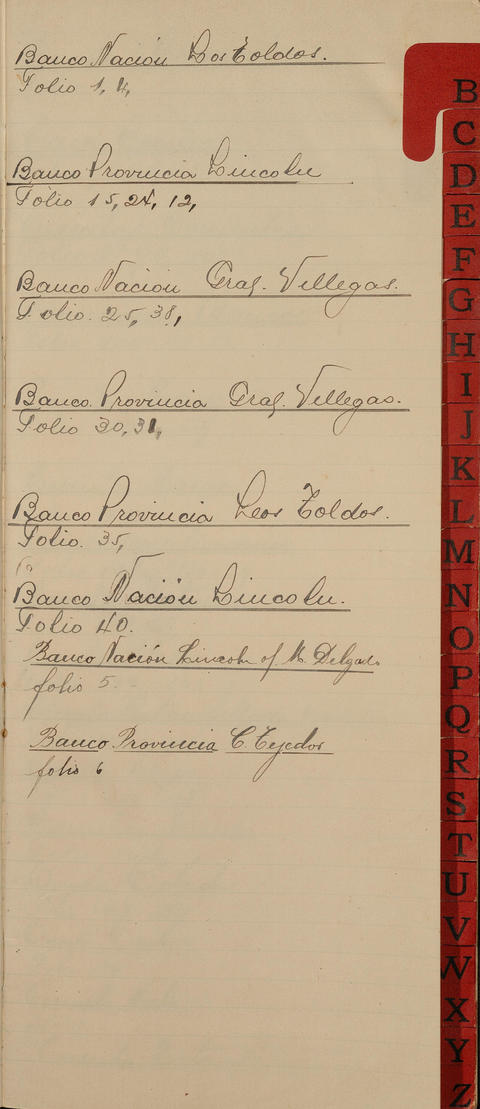 Banco Nación Los Toldos.
Folio 1, 4,
Banco Provincia Lincoln
Folio 15, 24, 12,
Banco Nación Gral. Villegas.
Folio. 25, 38,
Banco. Provincia Gral. Villegas.
Folio 30, 31,
Banco Provincia Leos Toldos.
Folio. 35,
Banco Nación Lincoln.
Folio 40.
Banco Nación Lincoln of M. Delgado
folio 5
Banco Provincia C. Tejedor
folio 6
B
C
D
E
F
G
H
I
J
K
L
M
N
O
P
Q
R
S
T
U
V
W
X
Y
Z